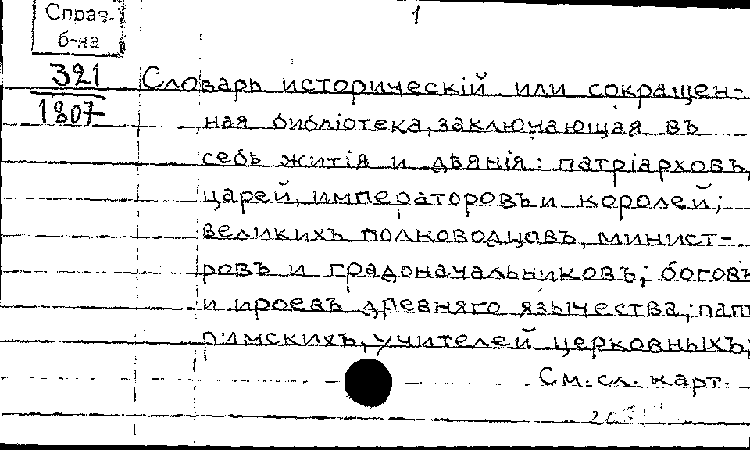 1
Справ.
б-ка
321
1807
Словарь историческій или сокращен-
ная библіотека, заключающая въ
себѣ житія и дѣянія: патріарховъ,
царей, императоровъ и королей;
великихъ полководцовъ, минист-
ровъ и градоначальниковъ; боговъ
и ироевъ древняго язычества; пап
римскихъ, учителей церковныхъ;
См. сл. карт.